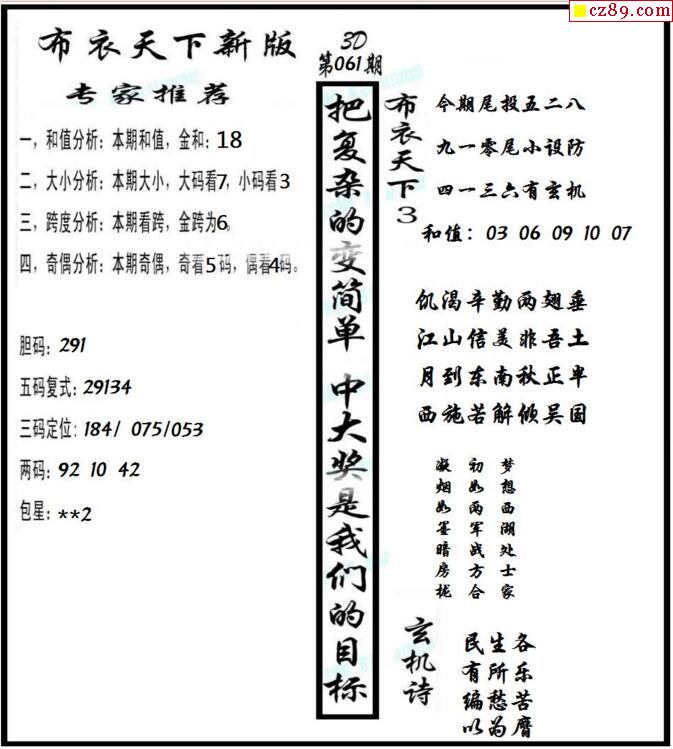 cz89.com
布衣天下新版
3D
第061期
专家推荐
一，和值分析：本期和值，金和：18
二，大小分析：本期大小，大码看7，小码看3
三，跨度分析：本期看跨，金跨为6。
四，奇偶分析：本期奇偶，奇看5码，偶看4码。
胆码：291
五码复式：29134
三码定位：184/ 075/053
两码：92 10 42
包星：**2
把复杂的变简单 中大奖是我们的目标
布衣天下3
今期尾投五二八
九一零尾小设防
四一三六有玄机
和值：03 06 09 10 07
饥渴辛勤两翅垂
江山信美非吾土
月到东南秋正半
西施苦解倾吴国
梦想西湖处士家
初如两军战方合
凝烟如墨暗房栊
玄机诗
民生各
有所乐
编愁苦
以为膺